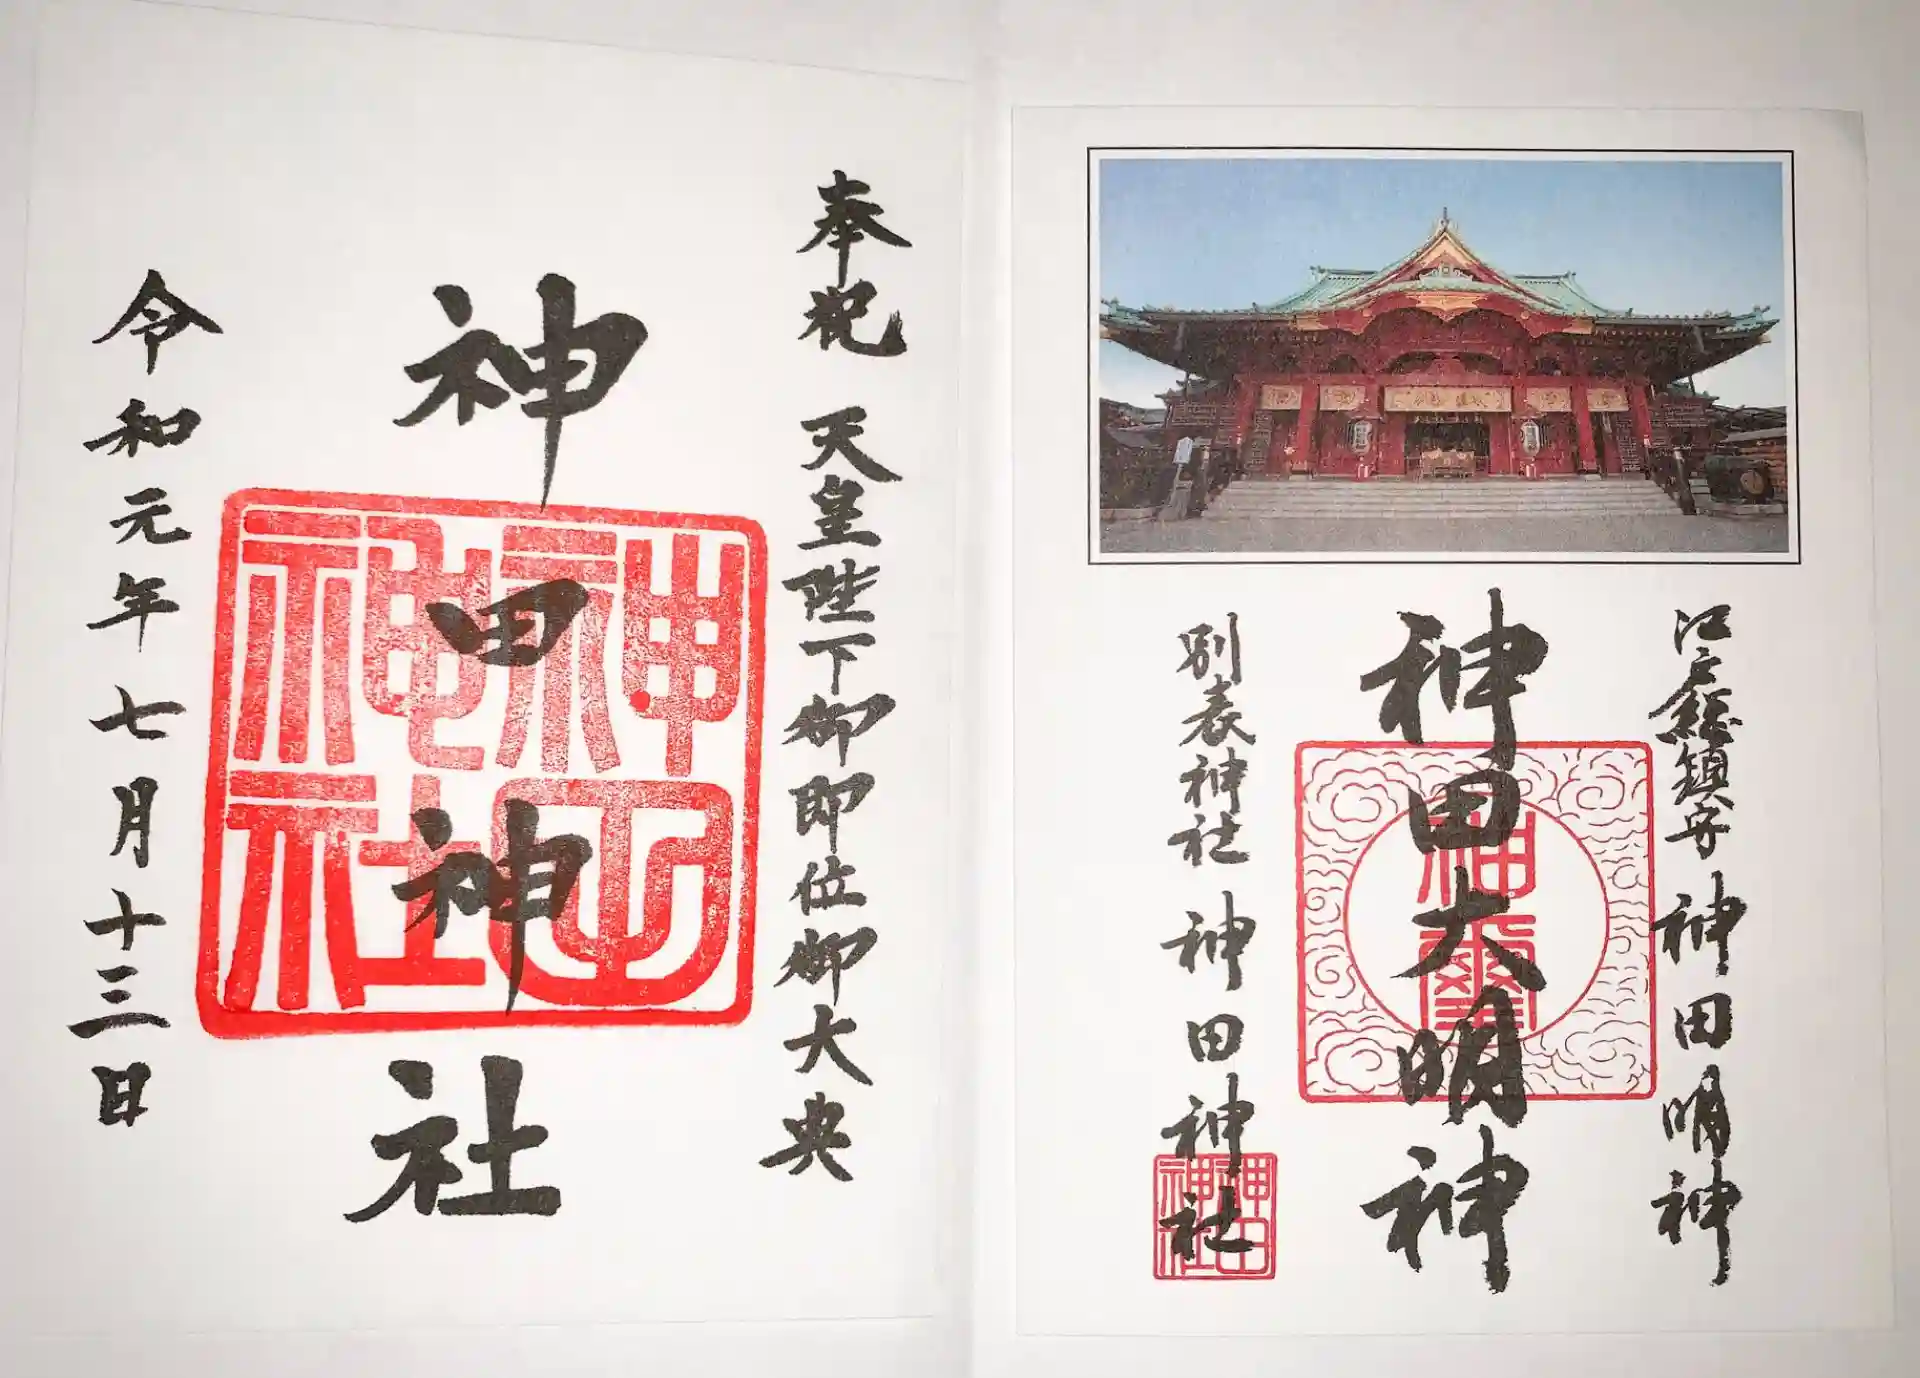 江戸總鎮守 神田明神
神田大明神
別表神社 神田神社
神田神社
神璽
奉祝 天皇陛下御即位御大典
神田神社
令和元年七月十三日
神田神社